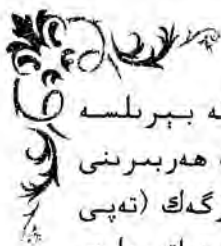 ە بېرىلسە
ھەربىرىنى
رگەك (تەپى